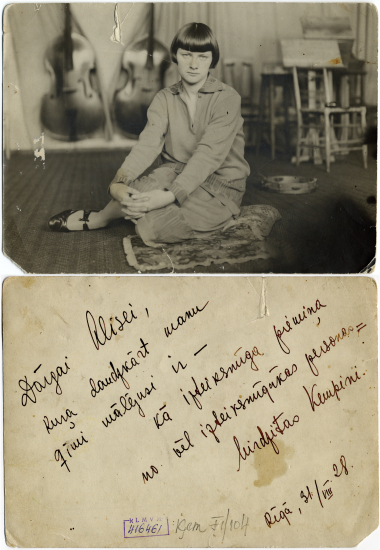 Dārgai Alisei,
kura daudzkārt manu
ģīmi mālējusi ir —
kā izteiksmīga piemiņa
no vēl izteiksmīgākas personas =
Mirdzitas Ķempiņi.
Rīgā, 31/VIII 28.
RLMVM
416461